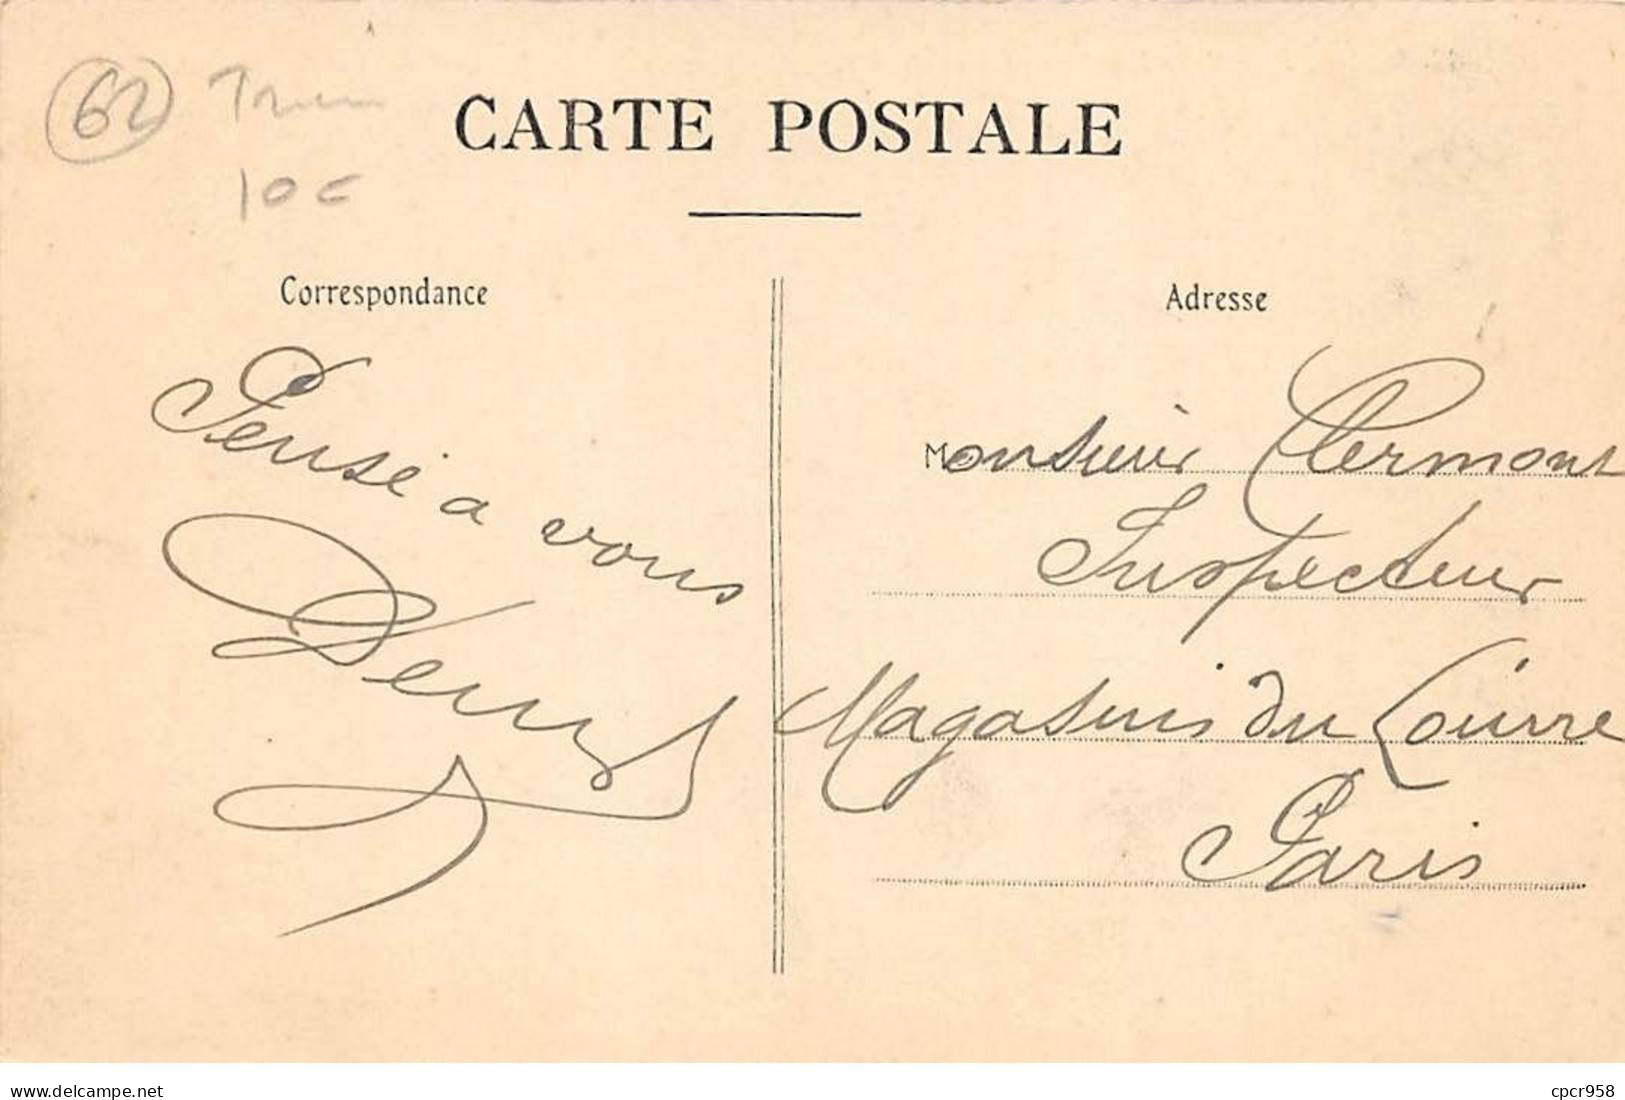 62
10 €
CARTE POSTALE
Correspondance
Adresse
Pensé à vous
Monsieur Clermont
Inspecteur
Magasins du Louvre
Paris
delcampe.net
cpcr958